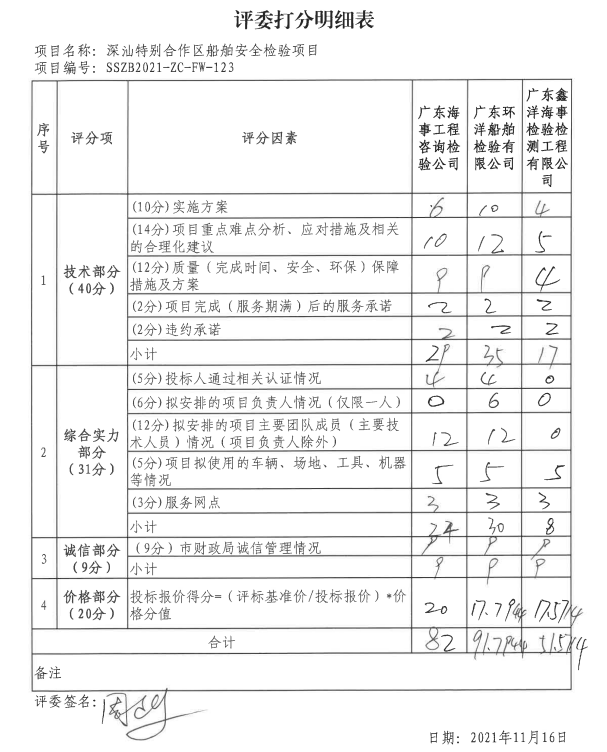 评委打分明细表
项目名称: 深汕特别合作区船舶安全检验项目
项目编号: SSZB2021-ZC-FW-123
序号 评分项 评分因素 广东海事工程咨询检验公司 广东环洋船舶检验有限公司 广东鑫洋海事检验检测工程有限公司
1 技术部分(40分)
(10分)实施方案 6 10 4
(14分)项目重点难点分析、应对措施及相关的合理化建议 10 12 5
(12分)质量(完成时间、安全、环保)保障措施及方案 9 9 4
(2分)项目完成(服务期满)后的服务承诺 2 2 2
(2分)违约承诺 2 2 2
小计 29 35 17
2 综合实力部分(31分)
(5分)投标人通过相关认证情况 4 4 0
(6分)拟安排的项目负责人情况(仅限一人) 0 6 0
(12分)拟安排的项目主要团队成员(主要技术人员)情况(项目负责人除外) 12 12 0
(5分)项目拟使用的车辆、场地、工具、机器等情况 5 5 5
(3分)服务网点 3 3 3
小计 24 30 8
3 诚信部分(9分)
(9分)市财政局诚信管理情况 9 9 9
小计 9 9 9
4 价格部分(20分)
投标报价得分=(评标基准价/投标报价)*价格分值 20 17.7944 17.5714
合计 82 91.7944 51.5714
备注
评委签名:
日期: 2021年11月16日